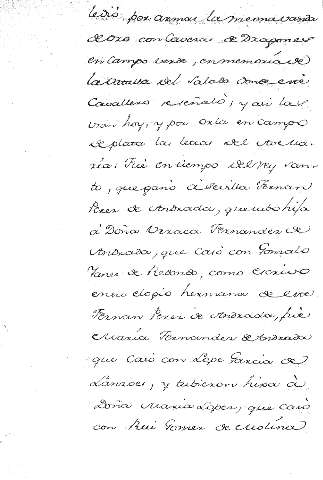 le dió, por armas la misma vanda
de oro con Caveras de Dragones
en Campo verde, en memoria de
la Batalla del Salado donde este
Cavallero se señaló; y asi las
usan hoy, y por orla en Campo
de plata las letras del Ave Ma-
ria. Fué en tiempo del Rey San-
to, que ganó á Sevilla Fernan
Perez de Andrada, que tubo hija
á Doña Urraca Fernandez de
Andrada, que Casó con Gonzalo
Yanez de Redondo, como escrivo
en su elogio hermana de este
Fernan Perez de Andrada, fué
Maria Fernandez de Andrada
que Casó con Lope Garcia de
y tubieron hija á
Doña Maria Lopez, que casó
con Rui Gomez de Molina